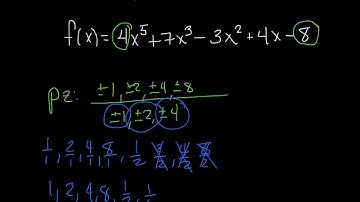 f(x) = 4x⁵ + 7x³ - 3x² + 4x - 8
pz: ±1, ±2, ±4, ±8
±1, ±2, ±4
1/1, 2/1, 4/1, 8/1, 1/2
1, 2, 4, 8, 1/2, 1/